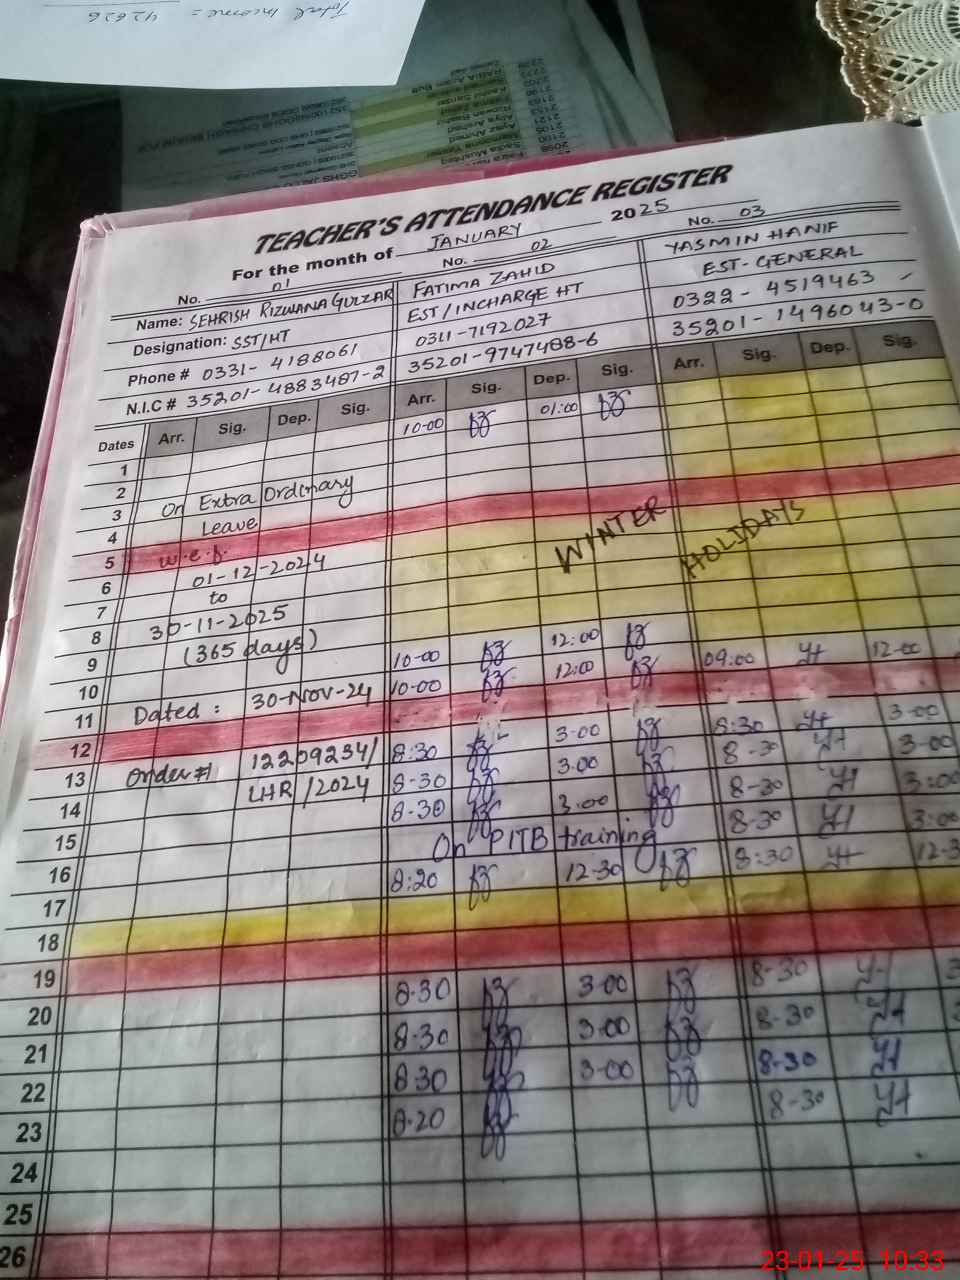 Total Income = 42626
TEACHER'S ATTENDANCE REGISTER
For the month of JANUARY 2025
No. 01 No. 02 No. 03
Name: SEHRISH RIZWANA GULZAR FATIMA ZAHID YASMIN HANIF
Designation: SST/HT EST/INCHARGE HT EST-GENERAL
Phone # 0331-4188061 0311-7192027 0322-4519463
N.I.C # 35201-4883487-2 35201-9747488-6 35201-1496043-0
Dates Arr. Sig. Dep. Sig. Arr. Sig. Dep. Sig. Arr. Sig. Dep. Sig.
1 10-00 01:00
2
3 On Extra Ordinary
4 Leave
5 w.e.f.
6 01-12-2024 WINTER HOLIDAYS
7 to
8 30-11-2025
9 (365 days) 10-00 12:00 09:00 12-00
10 10-00 12:00
11 Dated: 30-Nov-24
12
13 Order # 12209234/ 8:30 3-00 8:30 3-00
14 LHR/2024 8-30 3.00 8-30 3-00
15 8-30 3:00 8-30 3:00
16 On PITB training 8-30 3:00
17 8:20 12-30 8:30
18
19
20 8-30 3-00 8-30
21 8-30 3-00 8-30
22 8-30 3-00 8-30
23 8-20 8-30
24
25
26
23-01-25 10:33